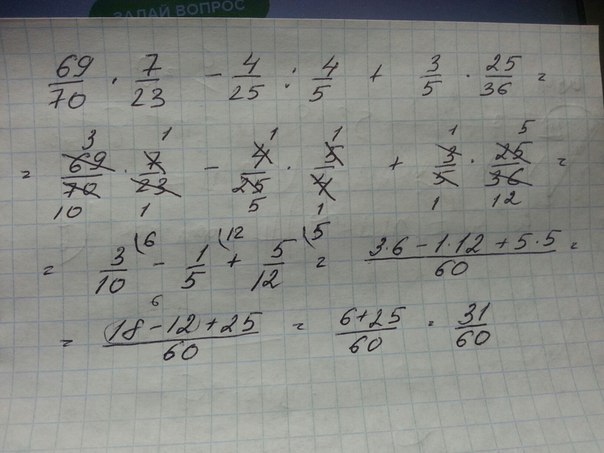 ЗАДАЙ ВОПРОС
69/70 · 7/23 - 4/25 : 4/5 + 3/5 · 25/36 =
= 69/70 · 7/23 - 4/25 · 5/4 + 3/5 · 25/36 =
= 3/10 (6 - 1/5 (12 + 5/12 (5 = (3·6 - 1·12 + 5·5)/60 =
= (18 - 12 + 25)/60 = (6+25)/60 = 31/60